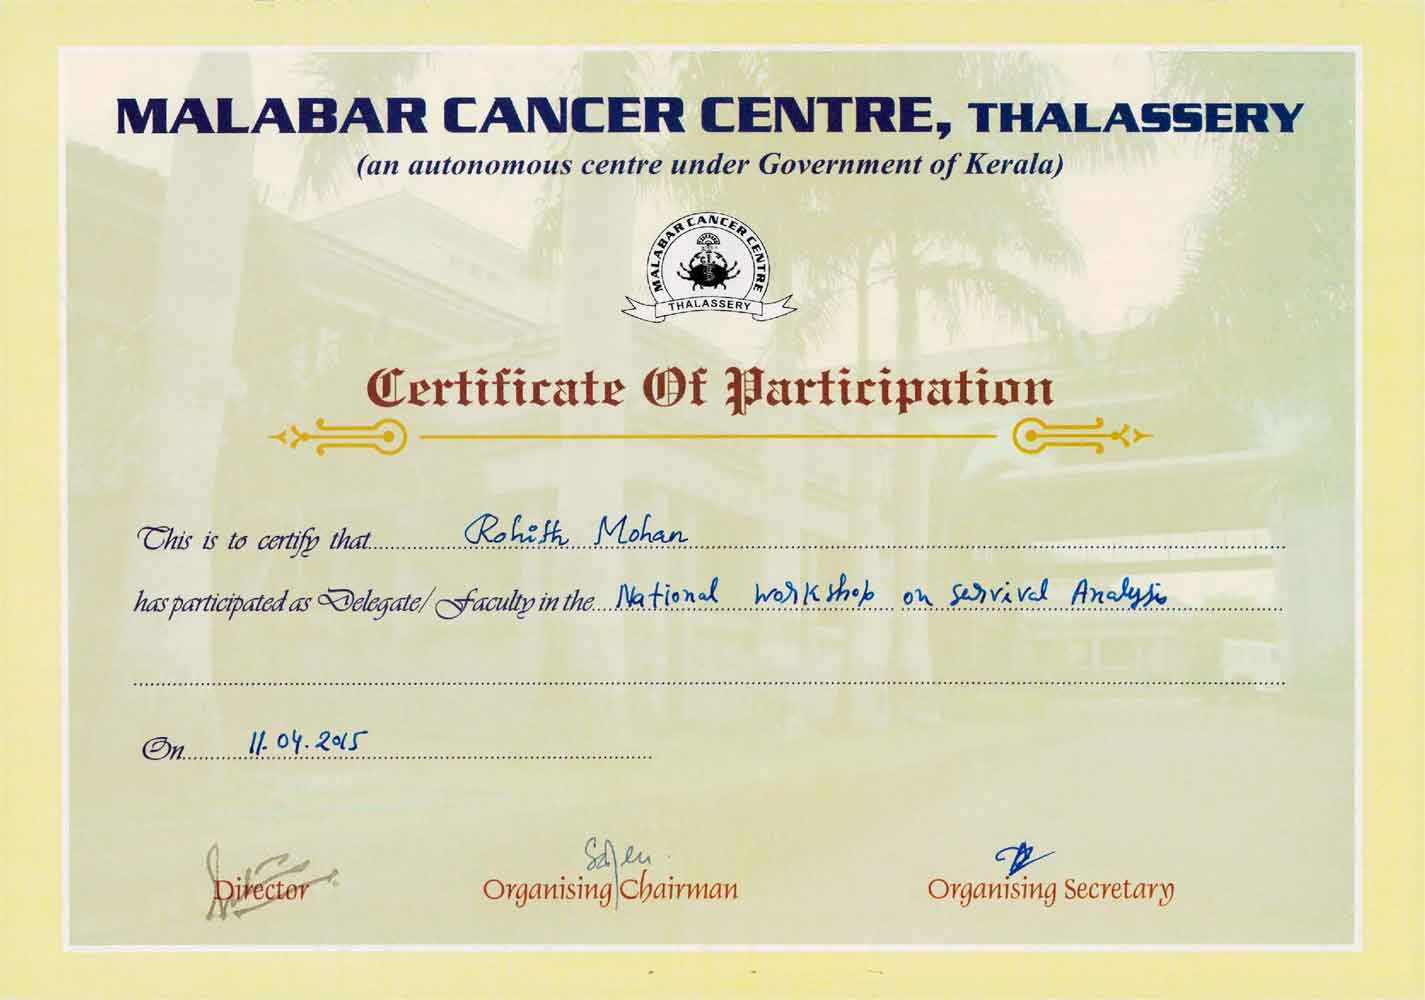 MALABAR CANCER CENTRE, THALASSERY
(an autonomous centre under Government of Kerala)
MALABAR CANCER CENTRE
THALASSERY
Certificate Of Participation
This is to certify that Rohith Mohan
has participated as Delegate/ Faculty in the National workshop on survival Analysis
On 11.04.2015
Sajen
Director
Organising Chairman
Organising Secretary